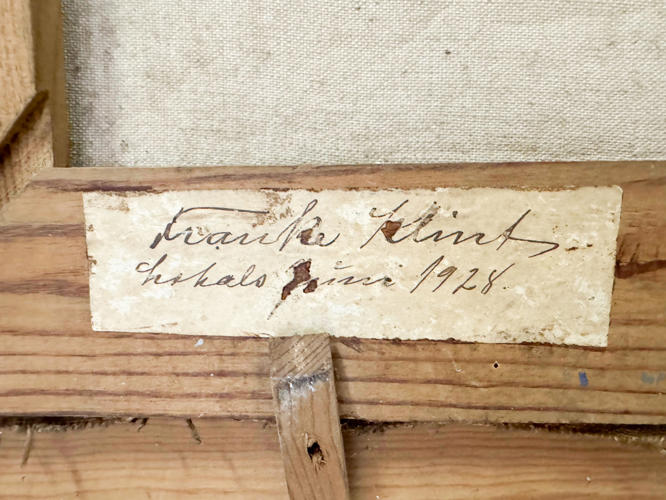 Franke Klint
Lohals Juni 1928.